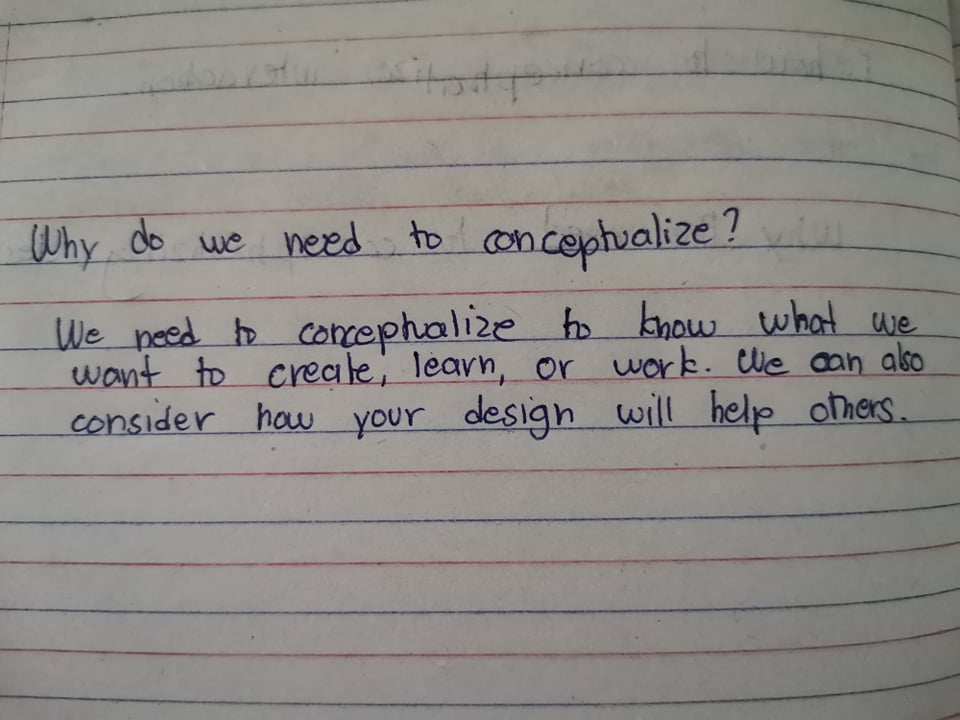 Why do we need to conceptualize?
We need to conceptualize to know what we
want to create, learn, or work. We can also
consider how your design will help others.